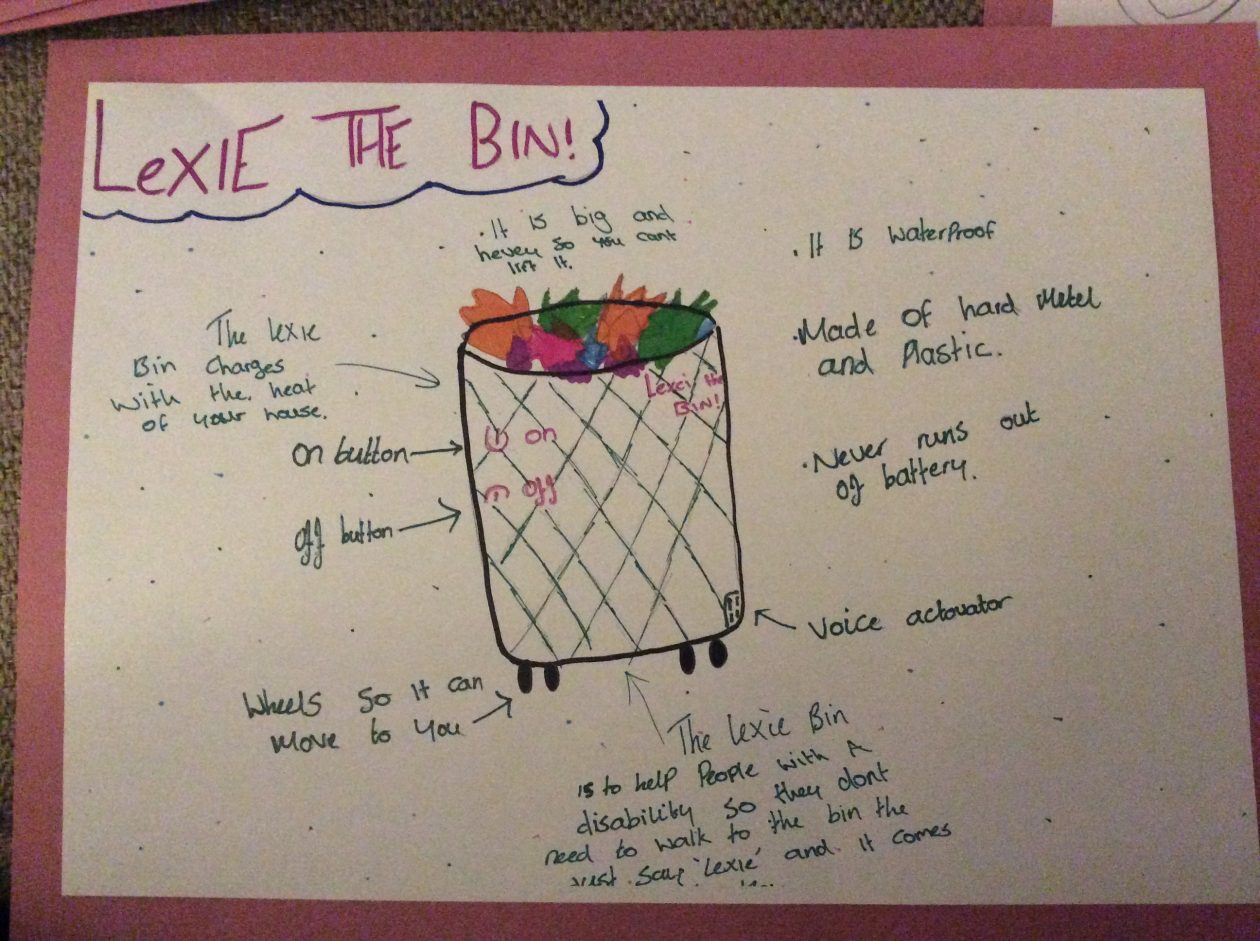 LeXIE THE BIN!
. It is big and
hevey so you cant
lift it.
. It is waterproof
The lexie
Bin Charges
with the heat
of your house.
.Made of hard Metel
and Plastic.
Lexci the
BIN!
on
On button
off
off button
.Never runs out
of battery.
Voice actovator
Wheels so it can
move to you
The lexie Bin
is to help People with A
disability so they dont
need to walk to the bin the
Just say 'Lexie' and it comes